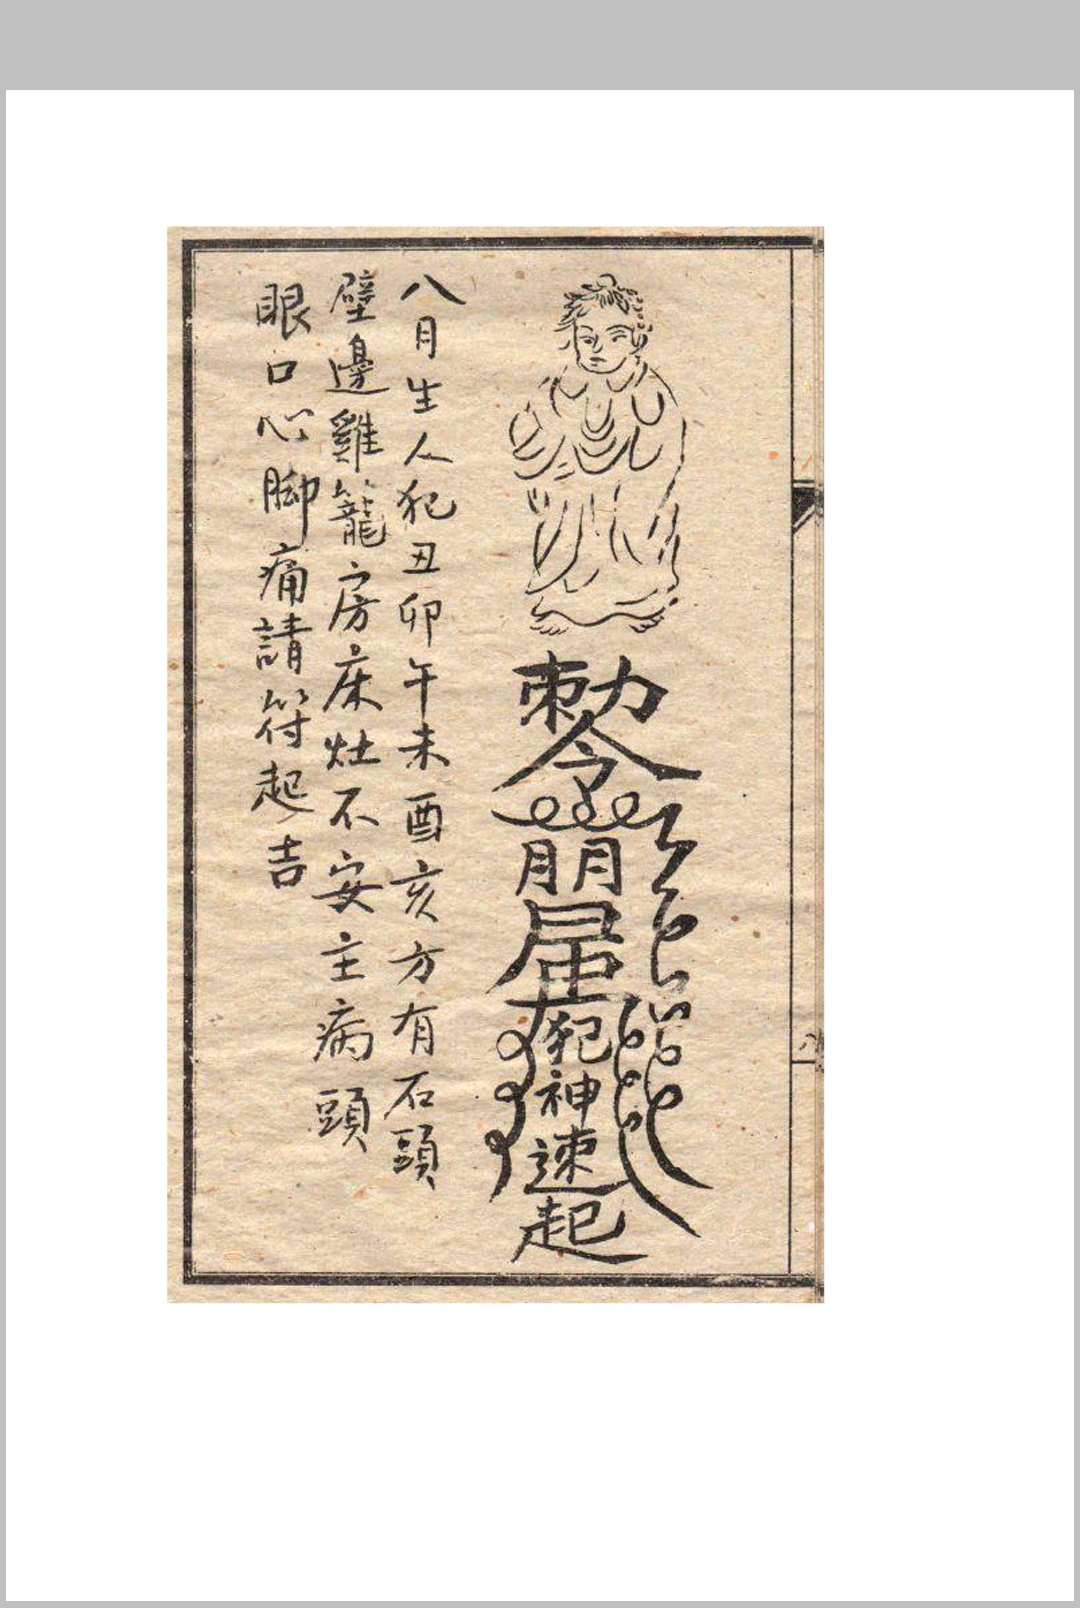 勅令
月月
屈
犯神速起
八月生人犯丑卯午未酉亥方有石頭
壁邊雞籠房床灶不安主病頭
眼口心脚痛請符起吉
八